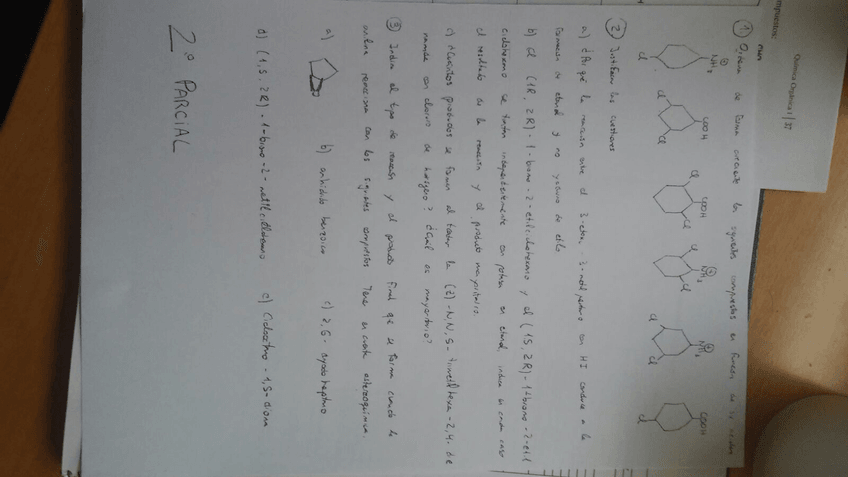 Química Orgánica I / II
① Ordena de forma creciente los siguientes compuestos en función de su acidez
NH₃ ⊕ Cl
COOH Cl Cl
COOH Cl
NH₃ ⊕ Cl Cl
NH₃ ⊕ Cl Cl
COOH Cl
② Justifican las cuestiones
a) ¿Por qué la reacción entre el 3-etoxi-3-metilpentano con HI conduce a la
formación de etanol y no yoduro de etilo
b) El (1R, 2R)-1-bromo-2-etilciclohexano y el (1S, 2R)-1-bromo-2-etil
ciclohexano se tratan independientemente con potasa en etanol, indica en cada caso
el resultado de la reacción y el producto mayoritario.
c) ¿Cuántos productos se forman al tratar la (Z)-N,N,5-trimetilhexa-2,4-die
namida con cloruro de hidrógeno? ¿Cuál es mayoritario?
③ Indica el tipo de reacción y el producto final que se forma cuando la
anilina reacciona con los siguientes compuestos. Tene en cuenta estereoquímica.
a) b) anhídrido benzoico c) 2,6-
d) (1S, 2R)-1-bromo-2-metilciclohexano e) Ciclooctano-1,5-diona
2º PARCIAL